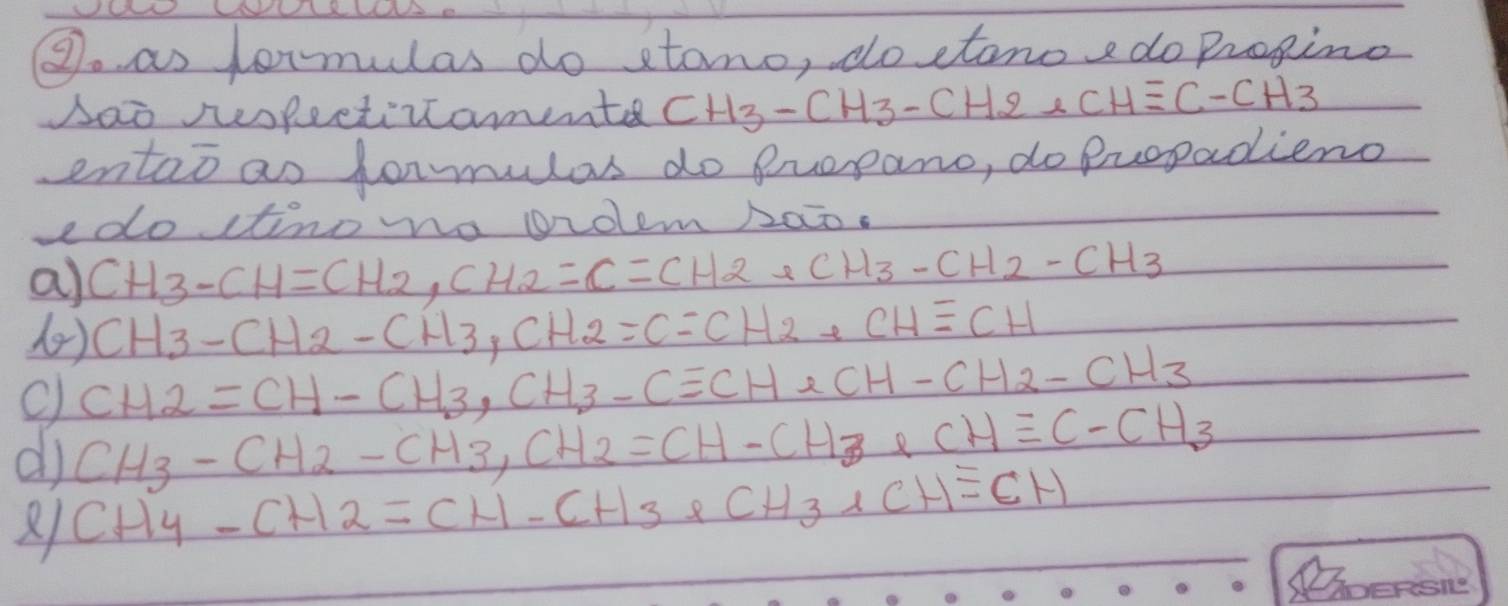 são corretas.
2. as formulas do etano, do etano e do Propino
são respectivamente CH3-CH3-CH2 e CH≡C-CH3
então as formulas do Propano, do Propadieno
e do etino na ordem são.
a) CH3-CH=CH2, CH2=C=CH2 e CH3-CH2-CH3
b) CH3-CH2-CH3, CH2=C=CH2 e CH≡CH
c) CH2=CH-CH3, CH3-C≡CH e CH-CH2-CH3
d) CH3-CH2-CH3, CH2=CH-CH3 e CH≡C-CH3
e) CH4-CH2=CH-CH3 e CH3 e CH≡CH